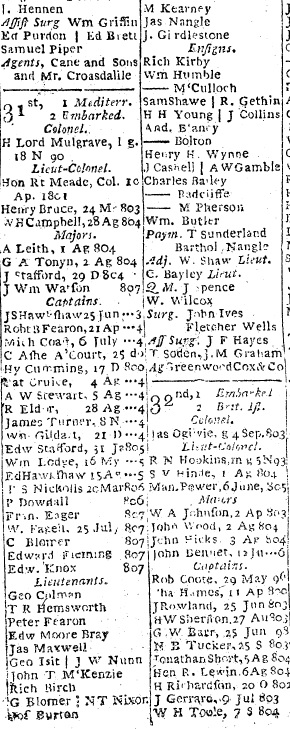 J. Hennen
Assist Surg Wm Griffin
Ed Purdon | Ed Brett
Samuel Piper
Agents, Cane and Sons
and Mr. Croasdalile
31st, 1 Mediterr.
2 Embarked.
Colonel.
H Lord Mulgrave, l g.
18 N 90
Lieut-Colonel.
Hon Rt Meade, Col. 1c
Ap. 1801
Henry Bruce, 24 Mr 803
WH Campbell, 28 Ag 804
Majors.
A Leith, 1 Ag 804
G A Tonyn, 2 Ag 804
J Stafford, 29 D 804
J Wm Watson 807
Captains.
JS Hawkshaw 25 Jun ···3
Robt B Fearon, 21 Ap ···4
Mich Coast, 6 July ···4
C Ashe A'Court, 25 do
Hy Cumming, 17 D 800
Pat Cruise, 4 Ag ···4
A W Stewart, 5 Ag ···4
R Eldor, 28 Ag ···4
James Turner, 8 N ···4
Wm Gilda, 21 D ···4
Edw Stafford, 31 Ja 805
Wm Lodge, 16 My ···5
Ed Hawkshaw 15 Ag ···5
P S Nickolls 20 Mar 806
P Dowdall 806
Fran. Eager 807
W. Fagell, 25 July 807
C Blomer 807
Edward Fleming 807
Edw. Knox 807
Lieutenants.
Geo Colman
T R Hemsworth
Peter Fearon
Edw Moore Bray
Jas Maxwell
Geo Isit | J W Nunn
John T M'Kenzie
Rich Birch
G Blomer | N T Nixon
Jos Burton
M Kearney
Jas Nangle
J. Girdlestone
Ensigns.
Rich Kirby
Wm Humble
— M'Culloch
Sam Shawe | R. Gethin
H H Young | J Collins
And.
— Bolton
Henry H. Wynne
J Cashell | A W Gamble
Charles Bayley
— Radcliffe
— M Pherson
Wm. Butler
Paym. T Sunderland
Barthol Nangle
Adj. W. Shaw Lieut.
C. Bayley Lieut.
Q. M. J Spence
W. Wilcox
Surg. John Ives
Fletcher Wells
Ass Surg. J F Hayes
T. Soden, J. M Graham
Ag Greenwood Cox & Co
32nd, 1 Embarked
2 Brit. Isl.
Colonel.
Jas Ogilvie, g 4 Sep. 803
Lieut-Colonel.
R N Hopkins, m g 5 N 93
S V Hinde, 1 Ag 804
Man. Power, 6 June, 805
Majors
W A Johnson, 2 Ap 803
John Wood, 2 Ag 804
John Hicks, 3 Ag 804
John Bennet, 12 Ju ···6
Captains.
Rob Coote, 29 May 96
Cha Hames, 11 Ap 800
J Rowland, 25 Jun 803
HW Sherson, 27 Au 803
G. W Barr, 25 Jun 98
N B Tucker, 25 S 803
Jonathan Short, 5 Ag 804
Hen R. Lewin, 6 Ag 804
H Richardson, 20 O 802
J Gerraro, 9 Jul 803
W H Toole, 7 S 804